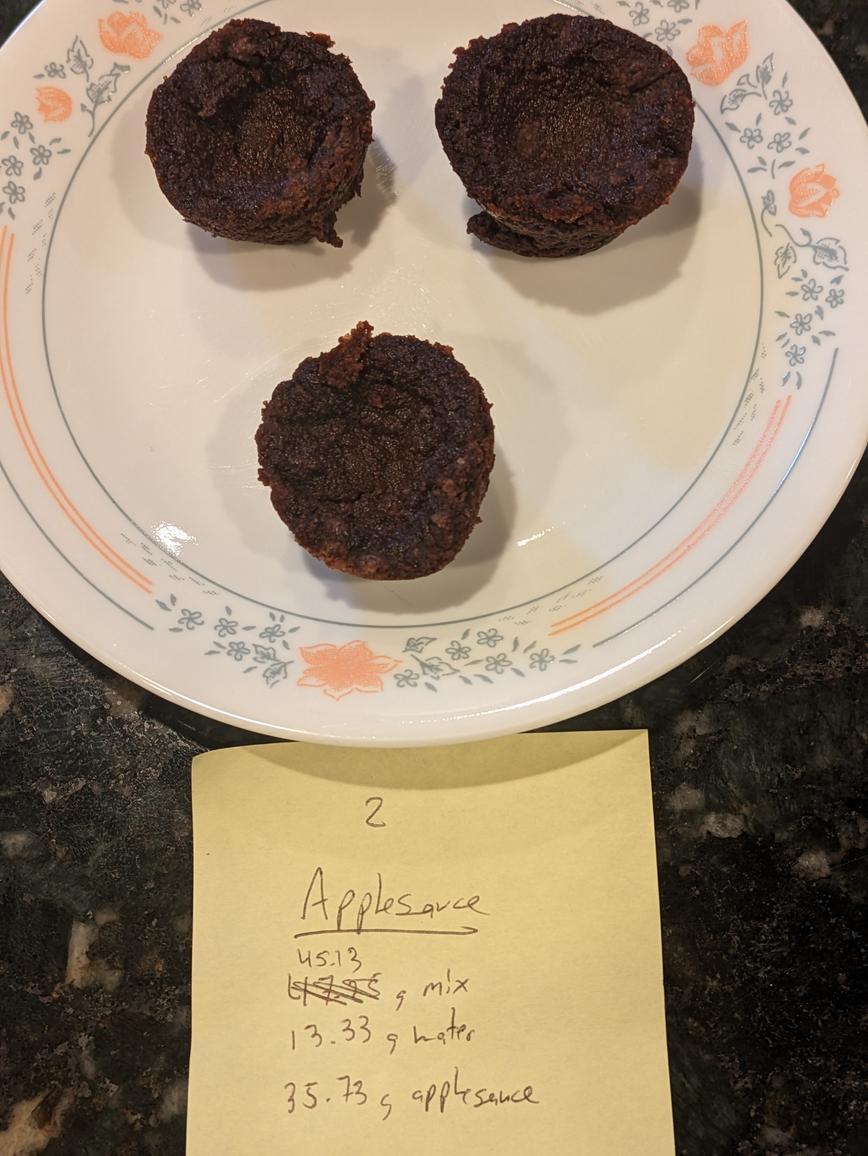 2
Applesauce
45.13
g mix
13.33 g water
35.73 g applesauce